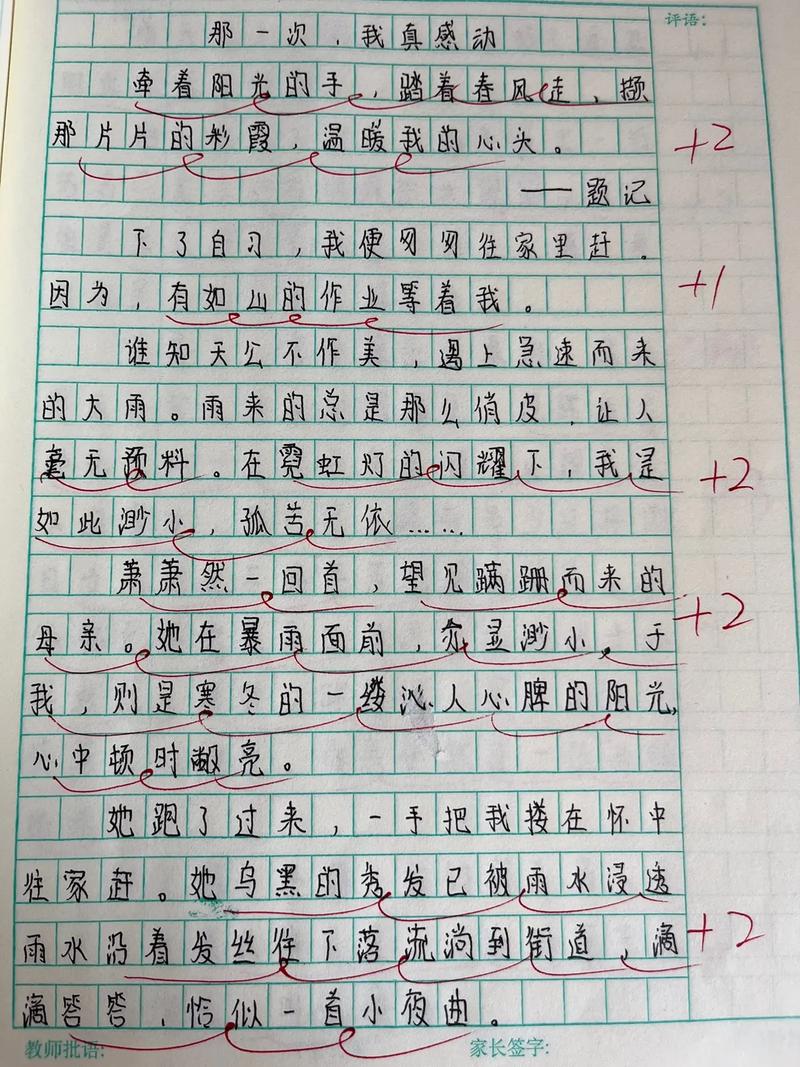 评语:
那一次，我真感动
牵着阳光的手，踏着春风走，撷
那片片的彩霞，温暖我的心头。
+2
——题记
下了自习，我便匆匆往家里赶。
因为，有如山的作业等着我。
+1
谁知天公不作美，遇上急速而来
的大雨。雨来的总是那么俏皮，让人
毫无预料。在霓虹灯的闪耀下，我是
+2
如此渺小，孤苦无依……
萧萧然一回首，望见蹒跚而来的
+2
母亲。她在暴雨面前，愈显渺小。于
我，则是寒冬的一缕沁人心脾的阳光，
心中顿时敞亮。
她跑了过来，一手把我搂在怀中
往家赶。她乌黑的秀发已被雨水浸透
雨水沿着发丝往下落流淌到街道，滴
+2
滴答答，恰似一首小夜曲。
教师批语: 家长签字: